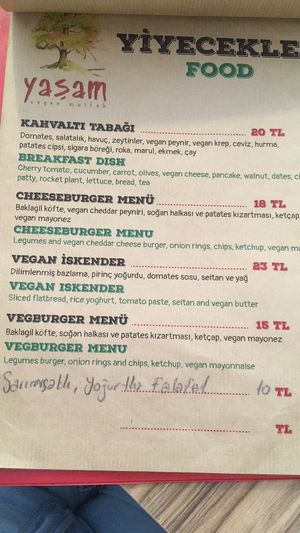 YİYECEKLE
FOOD
yaşam
vegan mutfak
KAHVALTI TABAĞI 20 TL
Domates, salatalık, havuç, zeytinler, vegan peynir, vegan krep, ceviz, hurma,
patates cipsi, sigara böreği, roka, marul, ekmek, çay
BREAKFAST DISH
Cherry tomato, cucumber, carrot, olives, vegan cheese, pancake, walnut, dates, c
patty, rocket plant, lettuce, bread, tea
CHEESEBURGER MENÜ 18 TL
Baklagil köfte, vegan cheddar peyniri, soğan halkası ve patates kızartması, ketça
vegan mayonez
CHEESEBURGER MENU
Legumes and vegan cheddar cheese burger, onion rings, chips, ketchup, vegan m
VEGAN İSKENDER 23 TL
Dilimlenmiş bazlama, pirinç yoğurdu, domates sosu, seitan ve yağ
VEGAN ISKENDER
Sliced flatbread, rice yoghurt, tomato paste, seitan and vegan butter
VEGBURGER MENÜ 15 TL
Baklagil köfte, soğan halkası ve patates kızartması, ketçap, vegan mayonez
VEGBURGER MENU
Legumes burger, onion rings and chips, ketchup, vegan mayonnaise
Sarımsaklı, Yoğurtlu Falafel 10 TL
TL